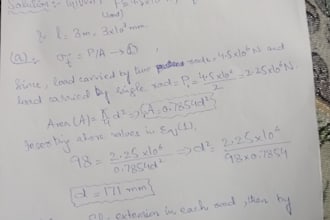 Solution:- Given:
load)
& l = 3m, 3x10³ mm.
(a) σt = P/A → (1)
Since, load carried by two rods = 4.5x10⁶ N and
load carried by single rod = P₁ = 4.5x10⁶/2 = 2.25x10⁶ N.
Area (A) = π/4 d² ⇒ A = 0.7854d²
Inserting above values in Eq (1),
98 = 2.25x10⁶/0.7854d² ⇒ d² = 2.25x10⁶/98x0.7854
d = 171 mm
extension in each rod, then by